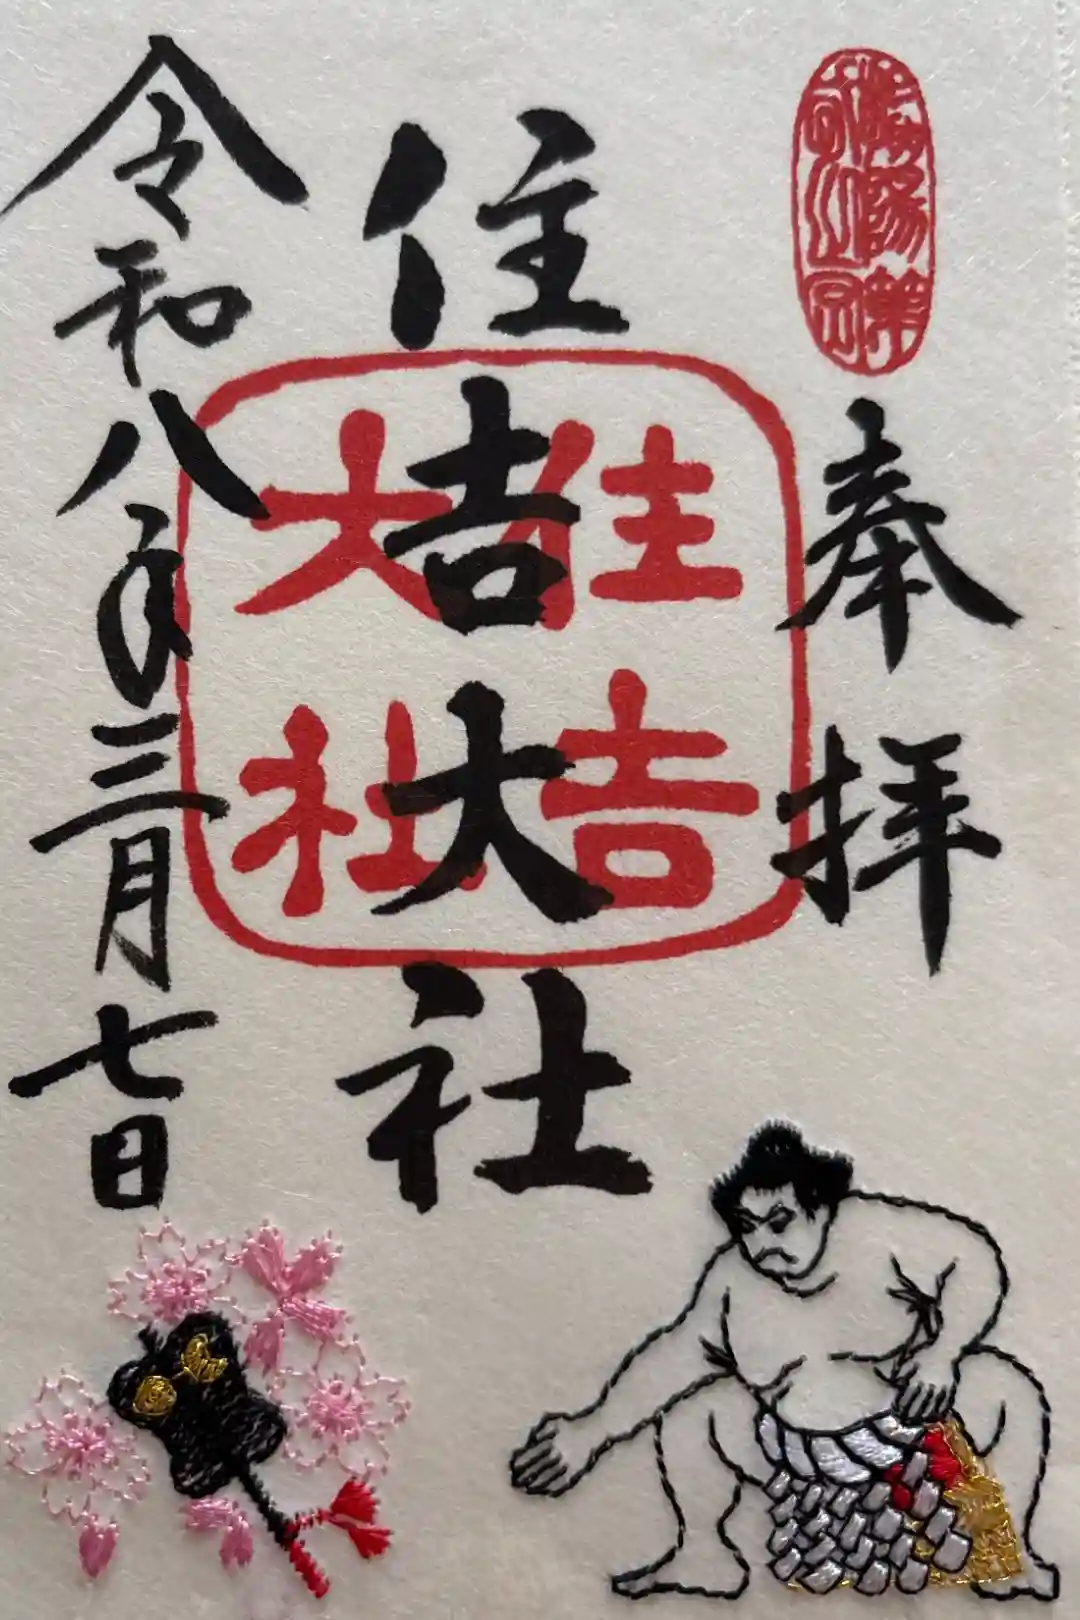 奉拝
住吉大社
住吉
大社
令和八年三月七日